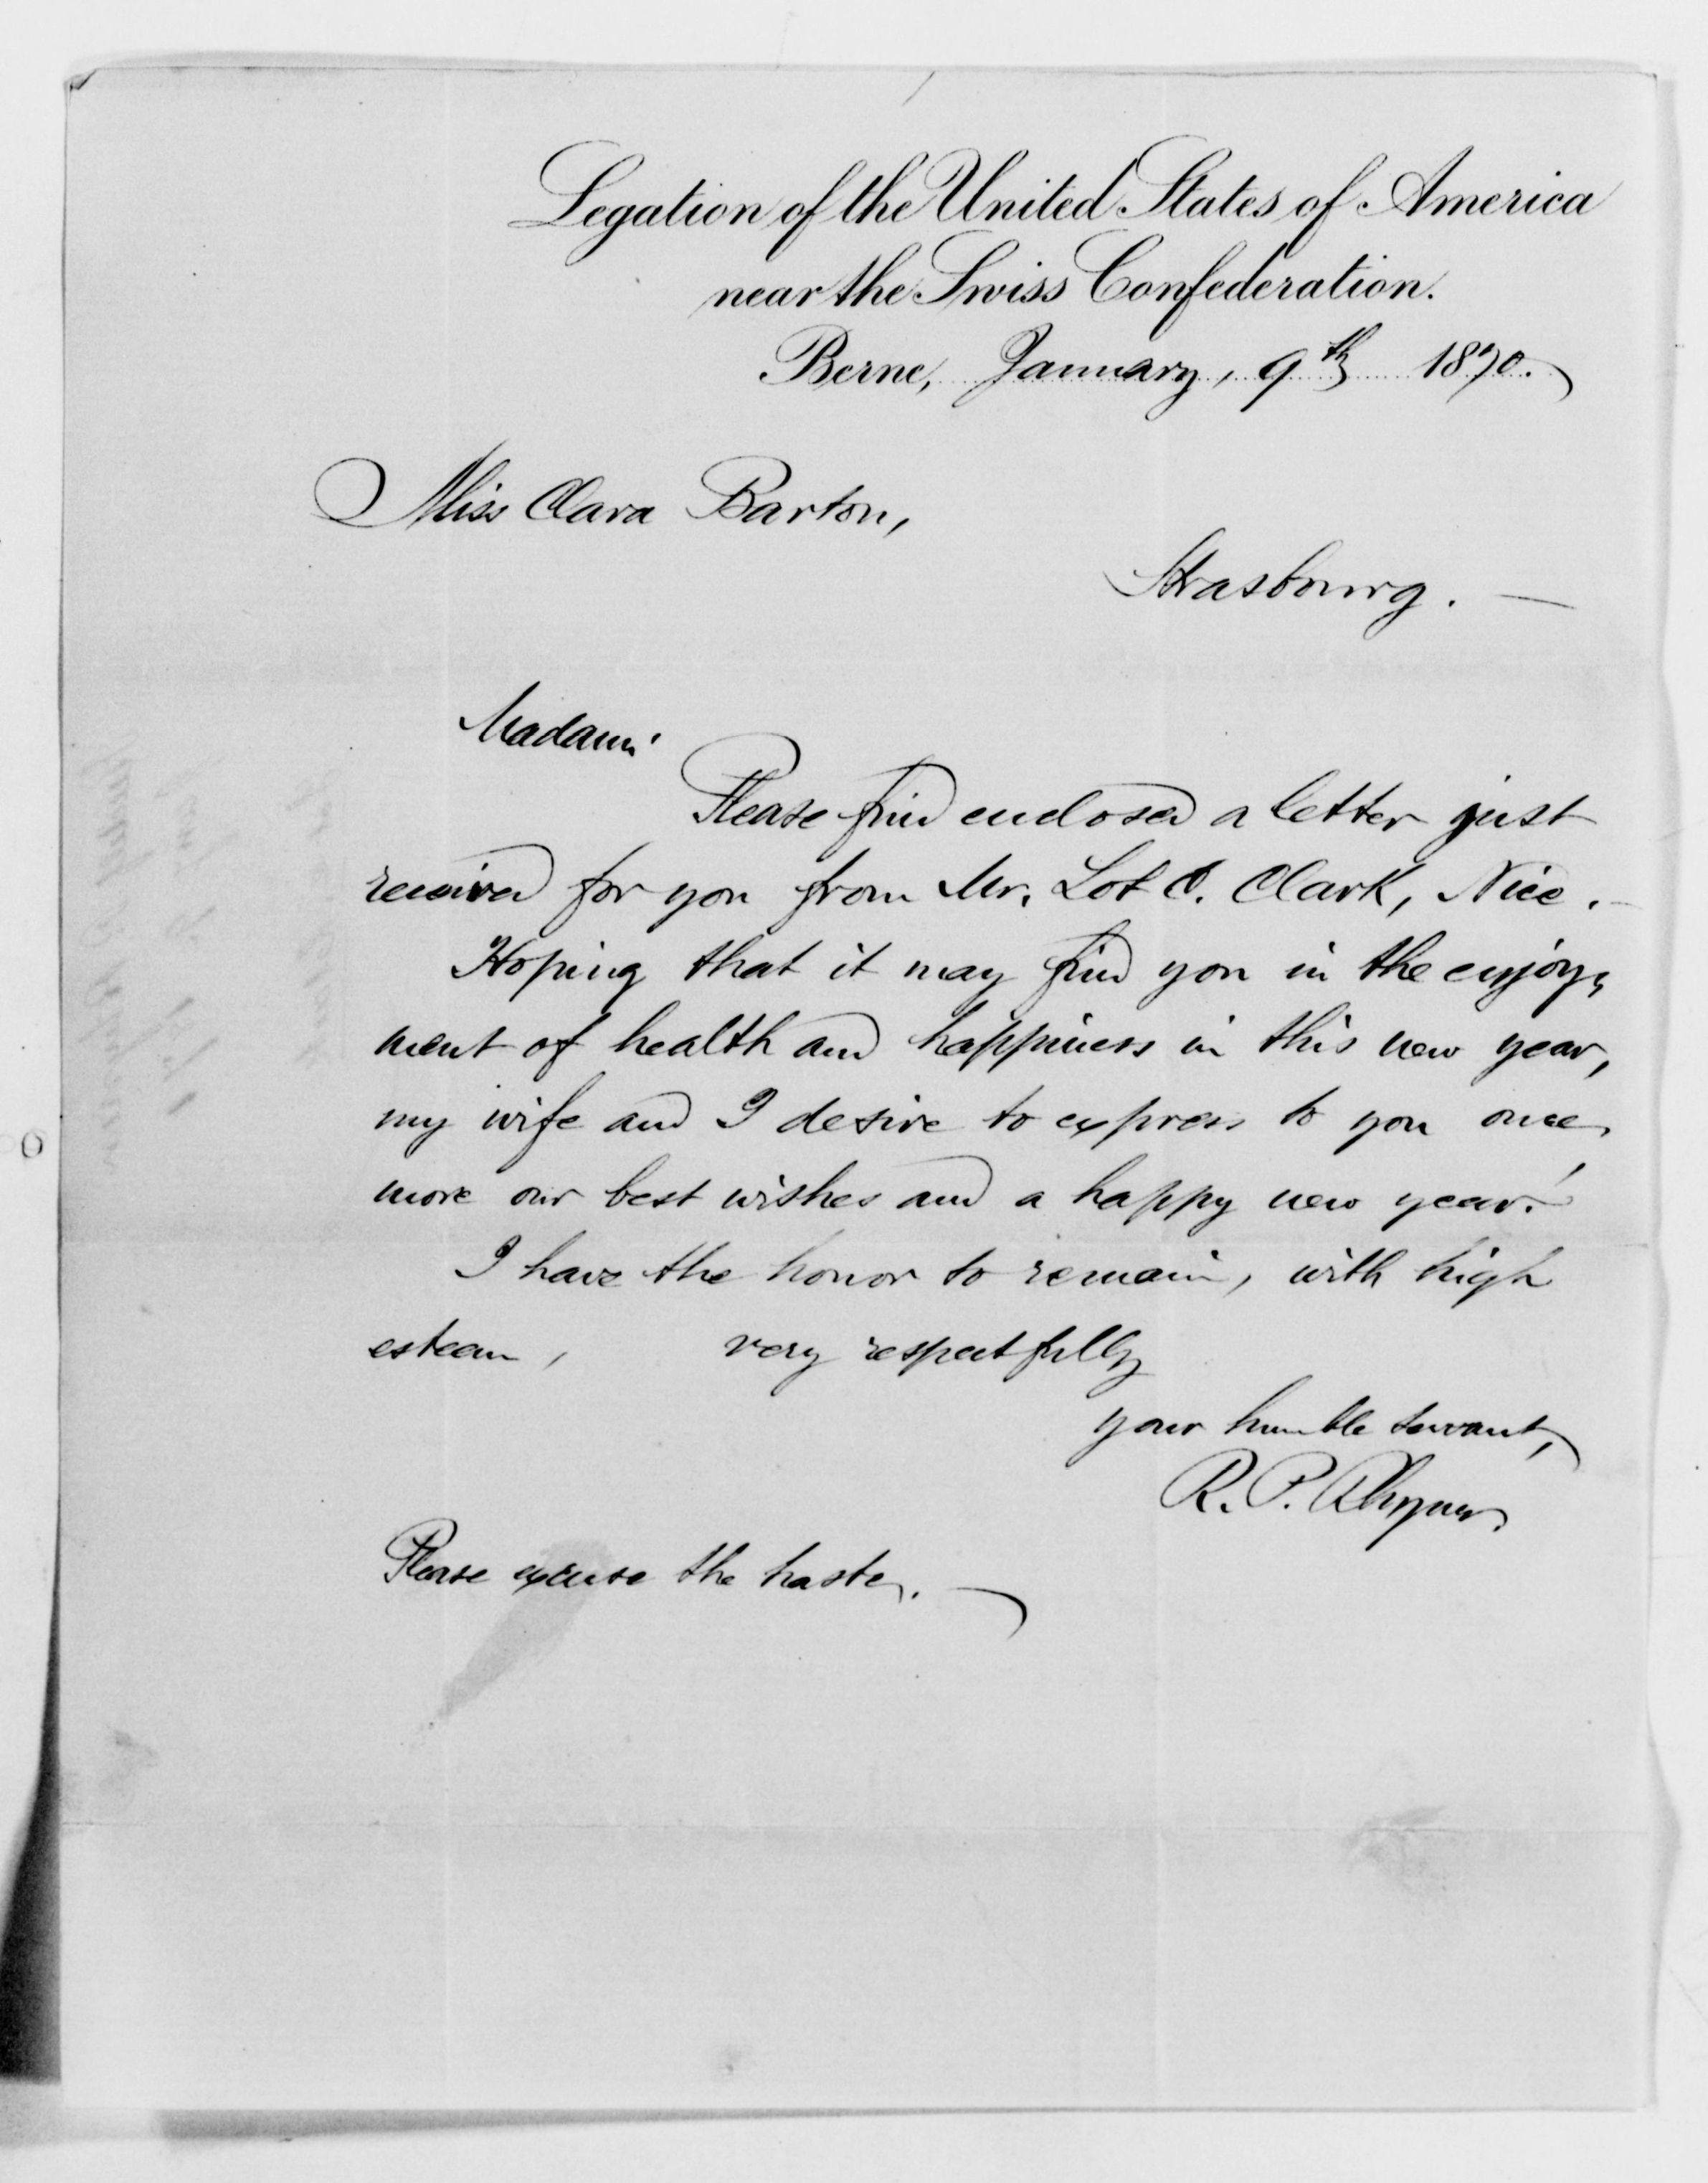 Legation of the United States of America
near the Swiss Confederation.
Berne, January, 9th 1870.
Miss Clara Barton,
Strasbourg. —
Madam:
Please find enclosed a letter just
received for you from Mr. Lot C. Clark, Nice. —
Hoping that it may find you in the enjoy-
ment of health and happiness in this new year,
my wife and I desire to express to you once
more our best wishes and a happy new year!
I have the honor to remain, with high
esteem, very respectfully
your humble servant,
R. P.
Please excuse the haste. —